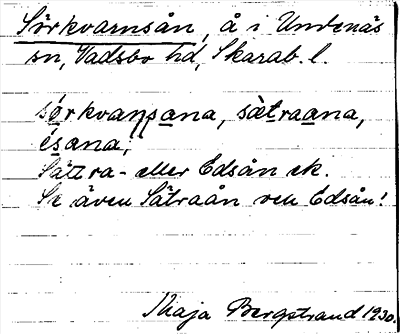 Sörkvarnsån, å i Undenäs
sn, Vadsbo hd, Skarab. l.
sørkvaɳsana, sætraana,
ésana,
Sätra- eller Edsån ek.
Se även Sätraån och Edsån!
Maja Bergstrand 1930.